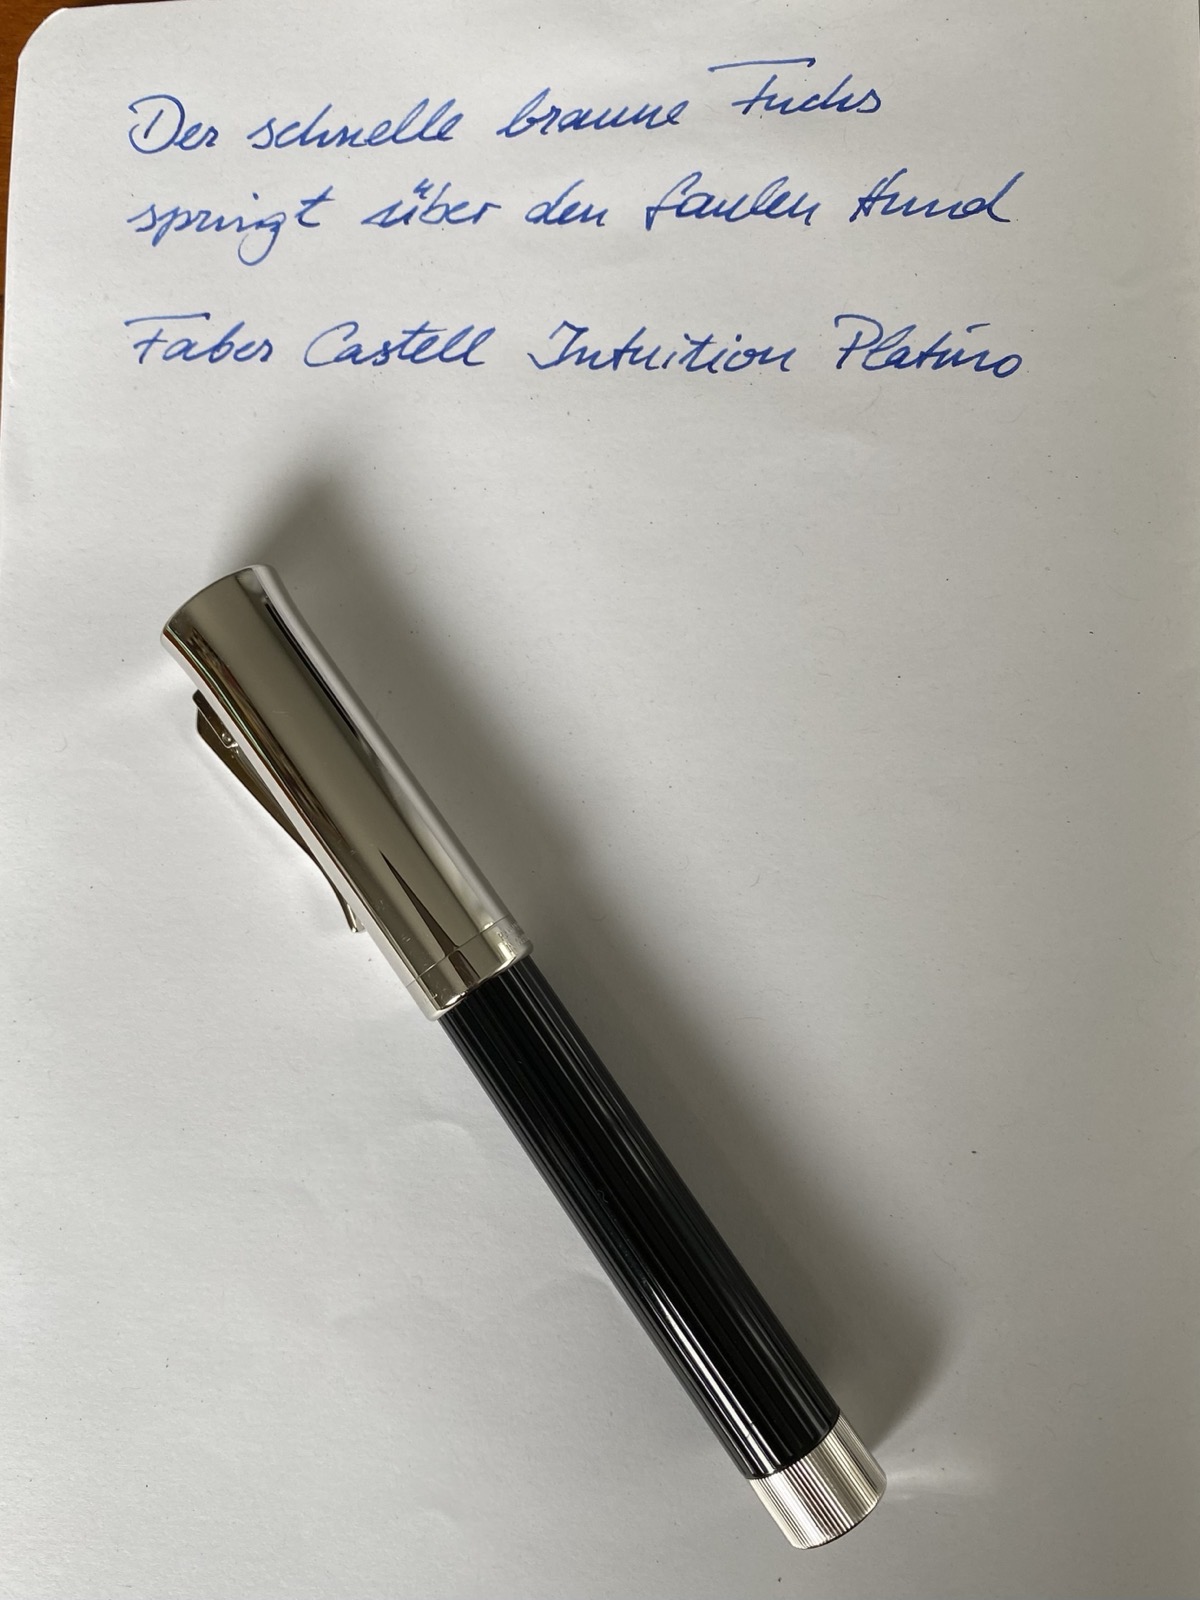 Der schnelle braune Fuchs
springt über den faulen Hund
Faber Castell Intuition Platino